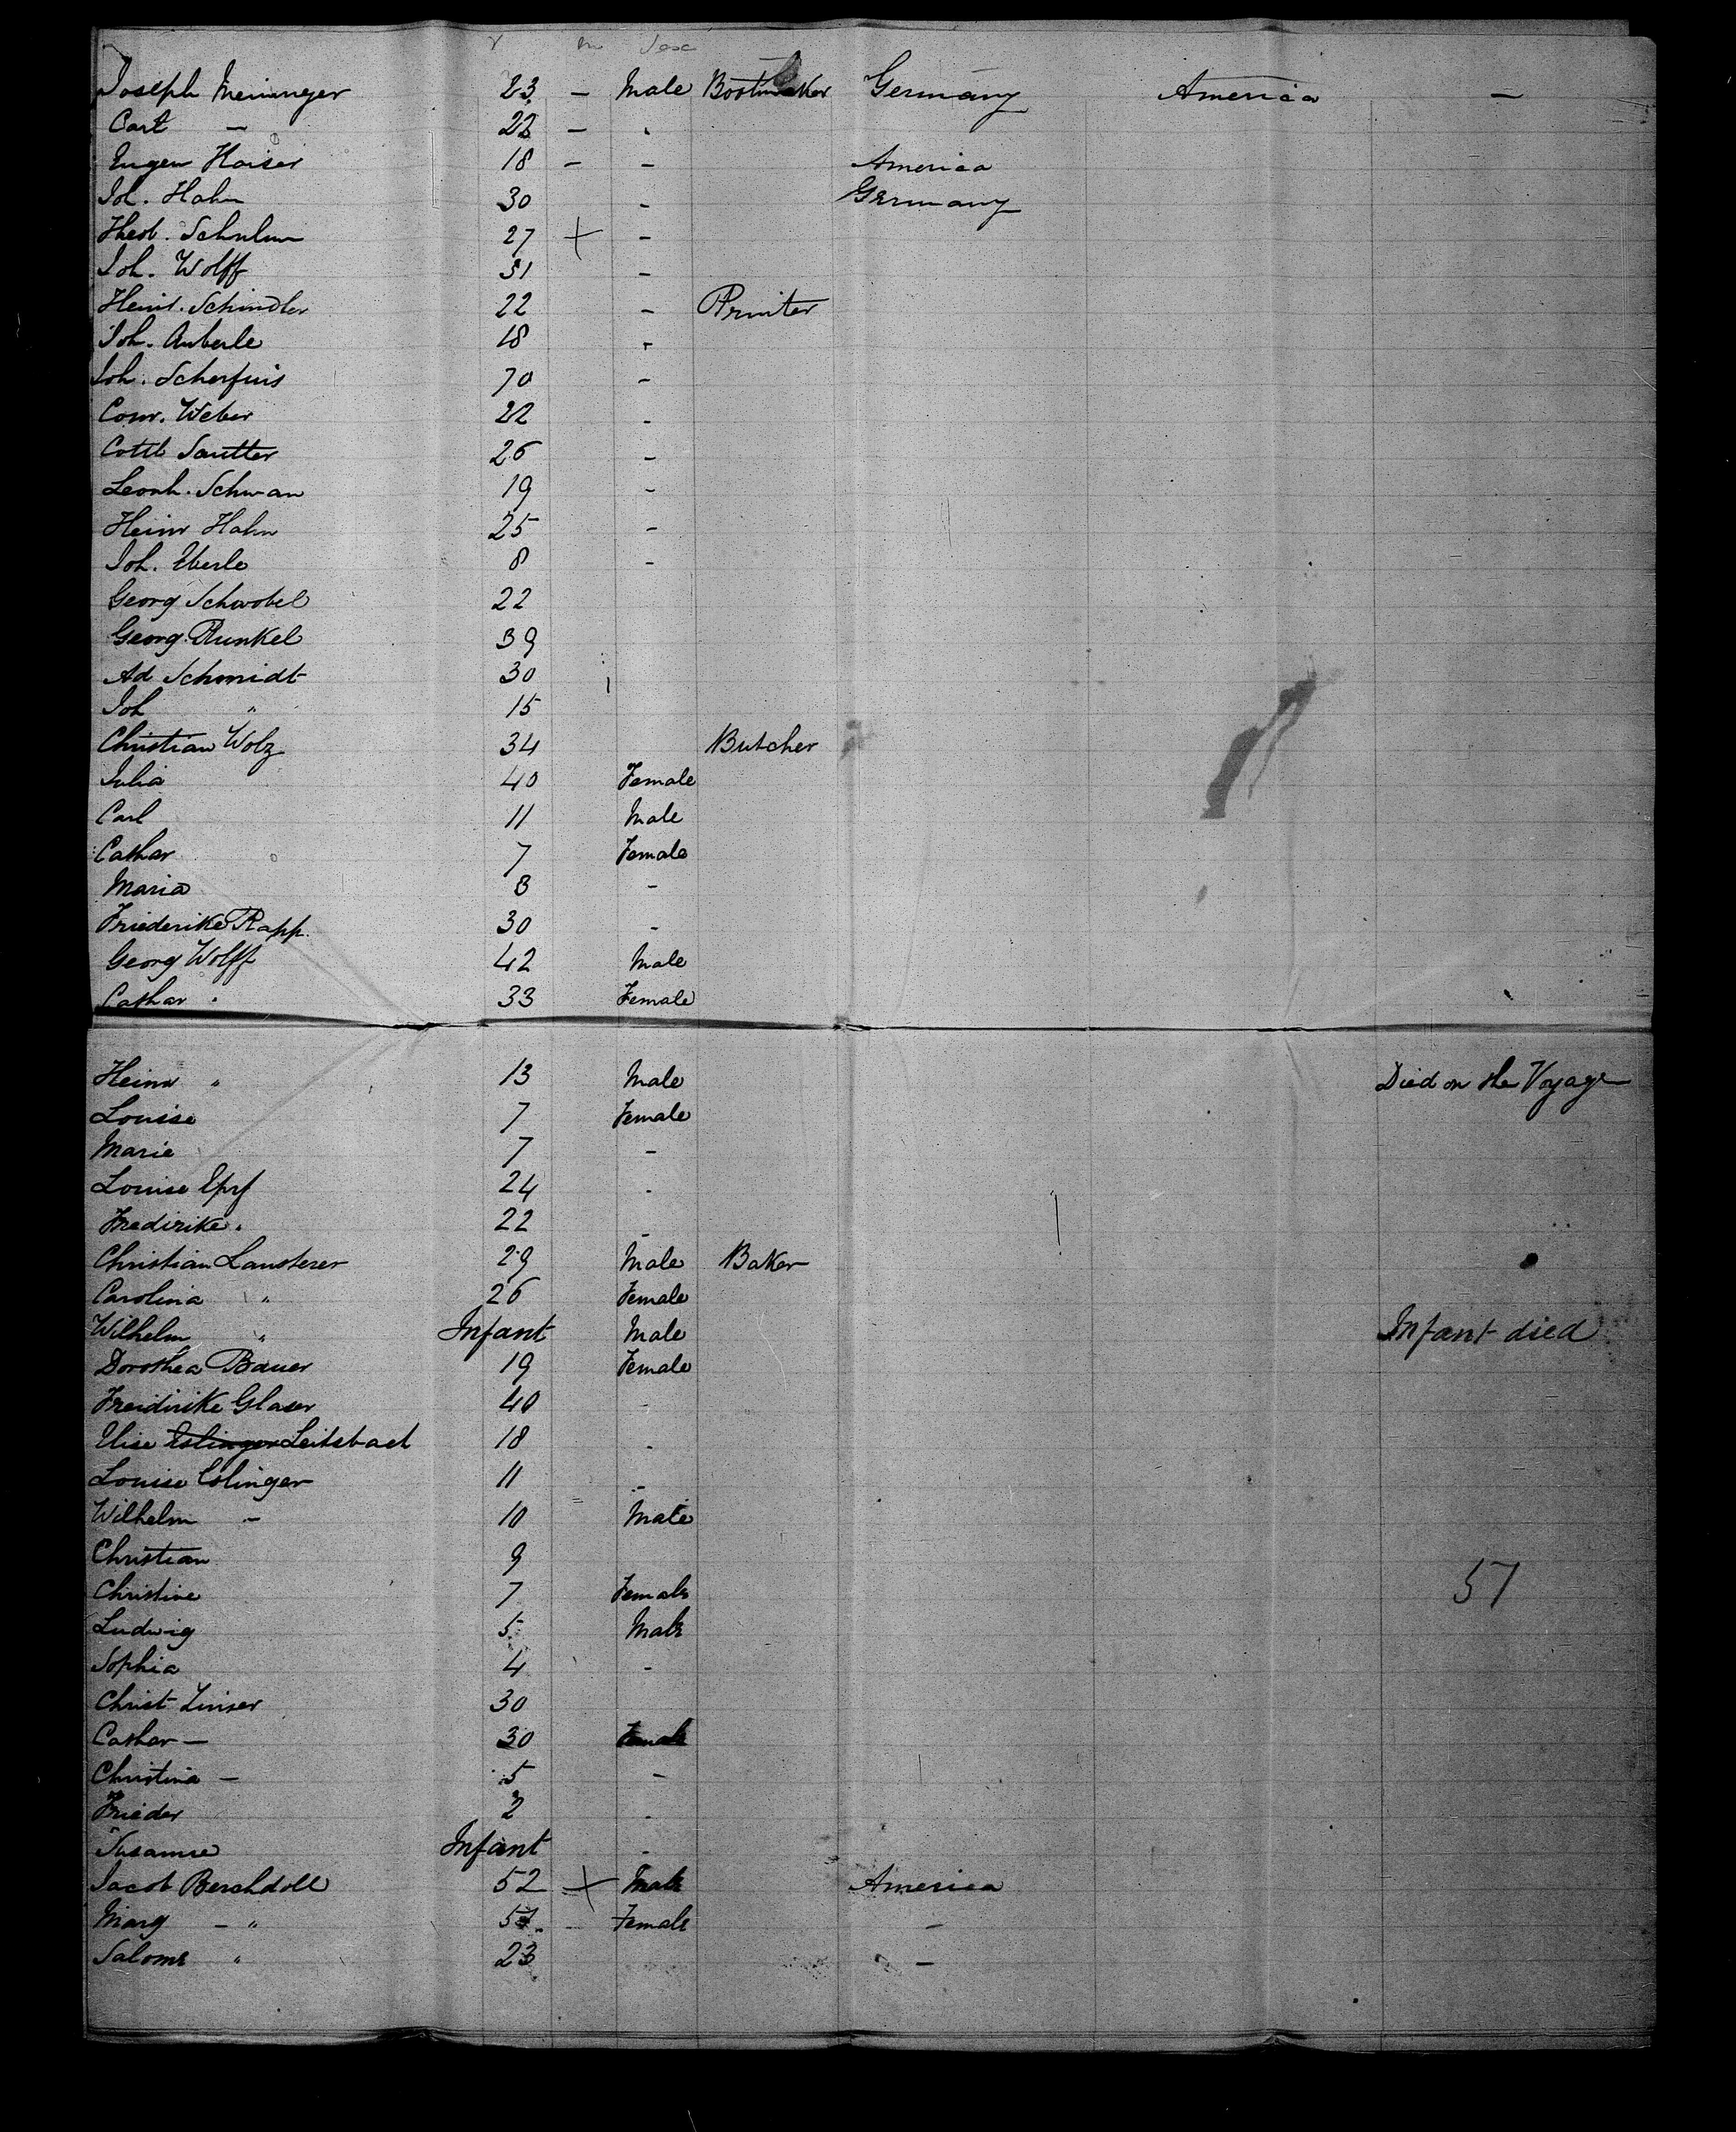 Y m Sex
Joseph Meninger 23 - Male Bootmaker Germany America -
Carl - 22 - "
Eugen Haiser 18 - - America
Joh. Hahn 30 - Germany
27 + -
Joh. Wolff 31 -
Heinr. Schindler 22 - Printer
Joh. Auberle 18 -
Joh. Scherfuis 70 -
Conr. Weber 22 -
Cottl Sautter 26 -
Leonh. Schwan 19 -
Heinr Hahn 25 -
Joh. Eberle 8 -
Georg Schwobel 22
Georg. Runkel 39
Ad Schmidt 30
Joh " 15
Christian Wolz 34 Butcher
Julia 40 Female
Carl 11 Male
Cathar 7 Female
Maria 3 -
Friederike Rapp. 30 -
Georg Wolff 42 Male
Cathar " 33 Female
Heinr " 13 Male Died on the Voyage
Louise 7 Female
Marie 7 -
Louise 24 -
Fredirike " 22 -
Christian Lausterer 29 Male Baker
Carolina " 26 Female
Wilhelm " Infant Male Infant died
Dorothea Bauer 19 Female
Freidirike Glaser 40 -
Elise Eslinger Leitsbach 18 -
Louise Eslinger 11 -
Wilhelm - 10 Male
Christian 9
Christine 7 Female 57
Ludwig 5 Male
Sophia 4 -
Christ Linser 30
Cathar - 30 Female
Christina - 5 -
Frieder 2 -
Susanne Infant -
Jacob Berchdoll 52 + Male America
Marg - " 57 - Female -
Salome " 23 -